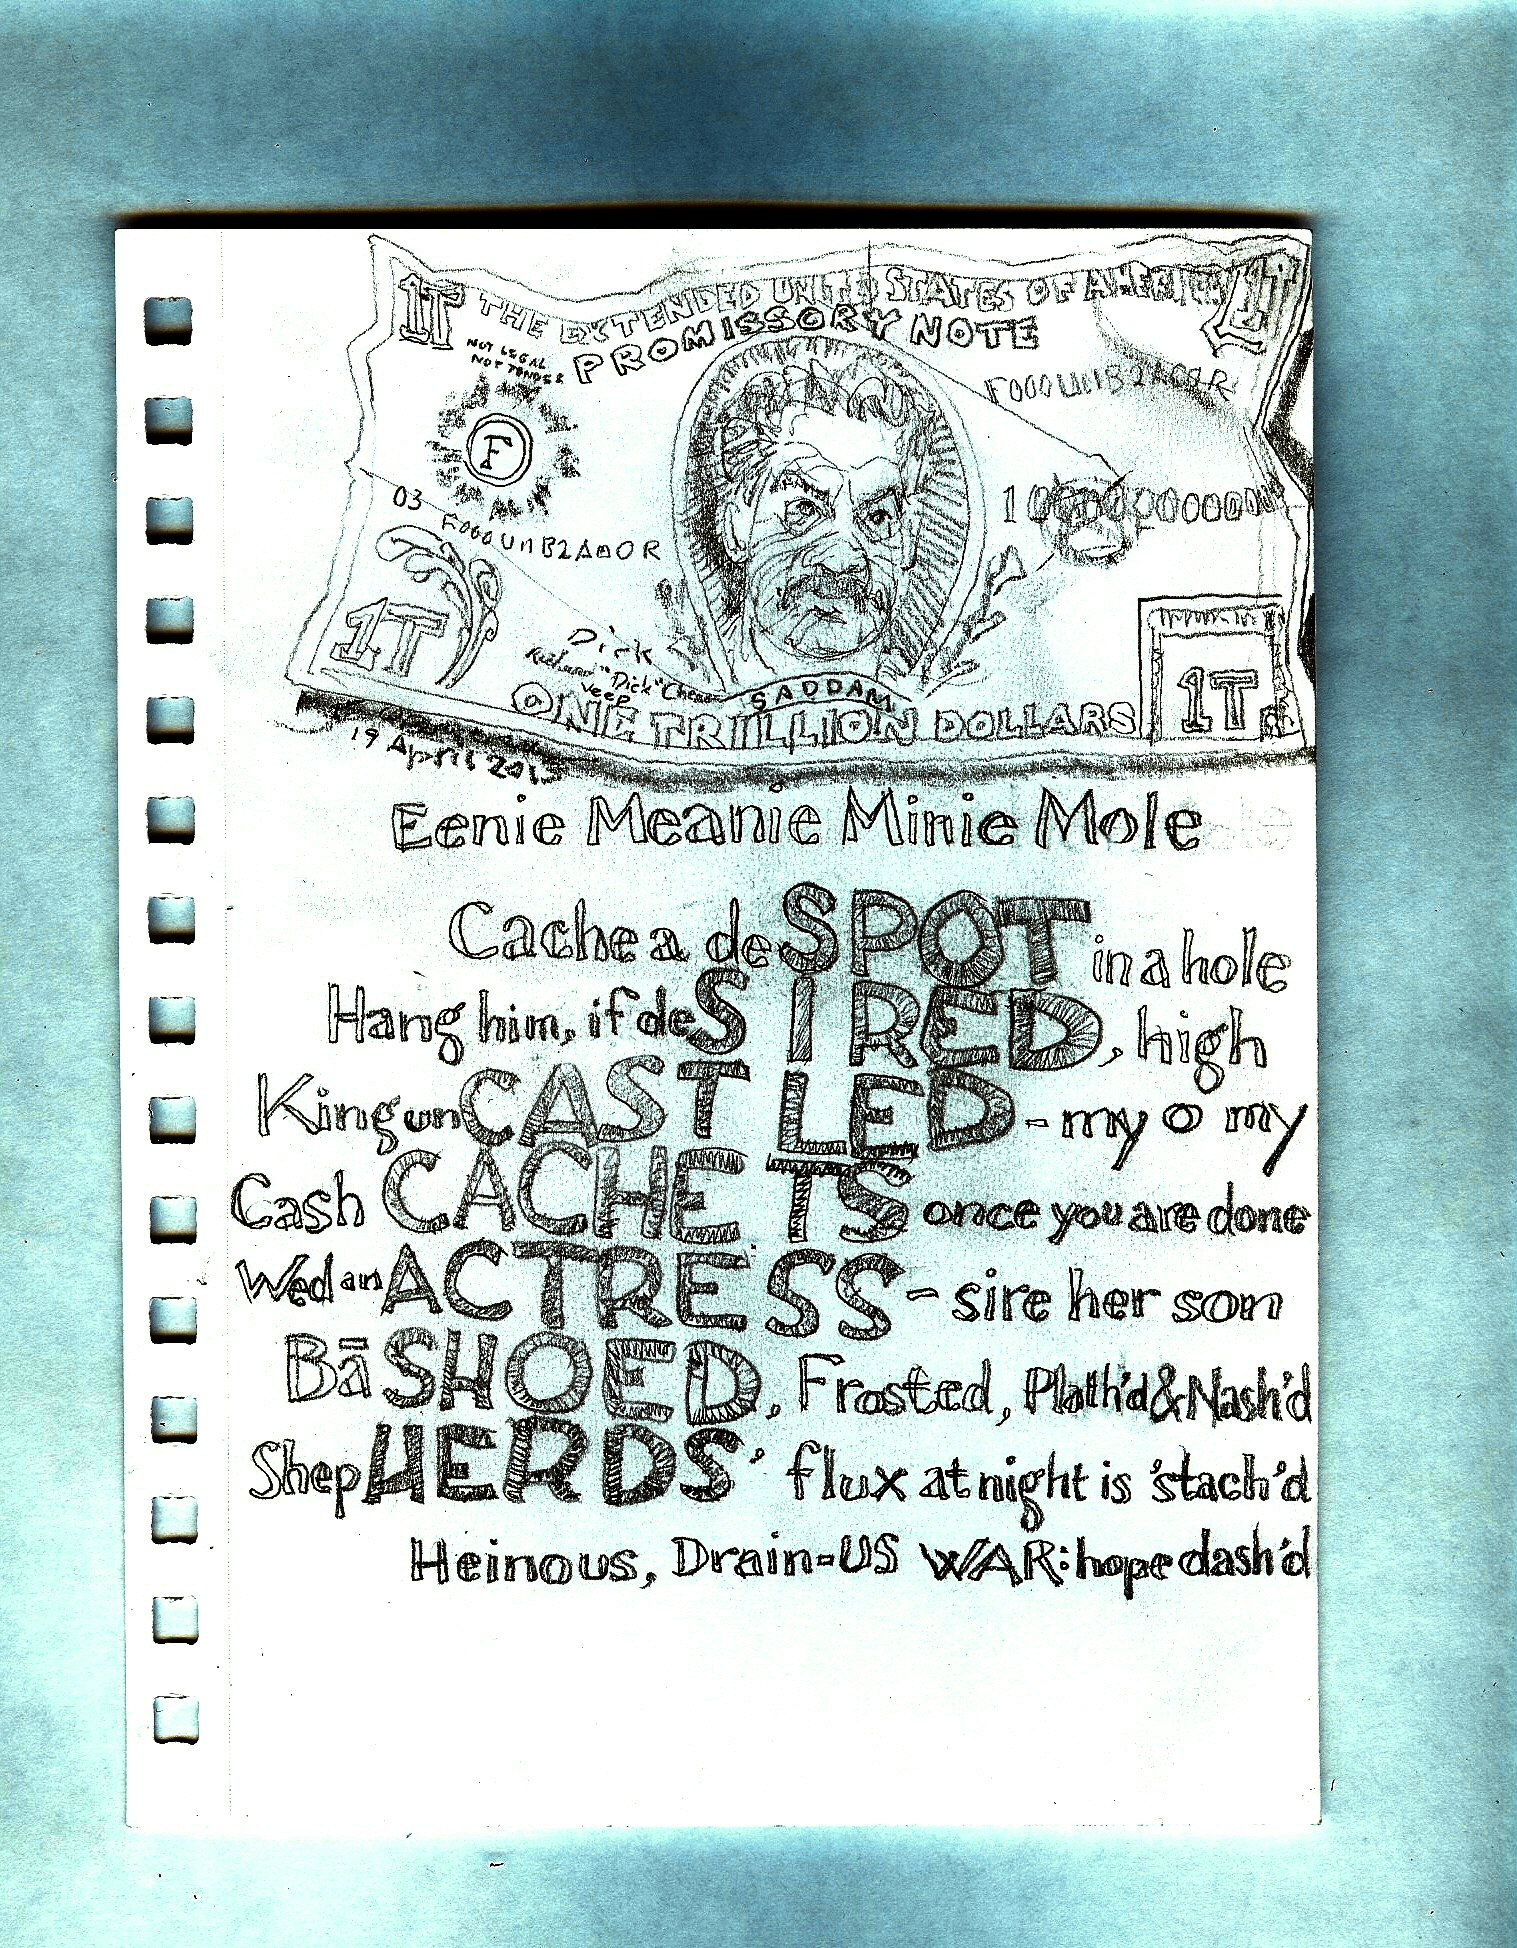 1T THE EXTENDED UNITED STATES OF AMERICA 1T
PROMISSORY NOTE
NOT LEGAL
NOT TENDER
F000UnB2AMOR
F
03 F000UnB2AMOR
1000000000000
1T
Dick
Richard "Dick" Cheney
Veep
SADDAM
ONE TRIILLION DOLLARS
1T
19 April 2013
Eenie Meanie Minie Mole
Cache a deSPOT in a hole
Hang him, if deSIRED, high
King unCASTLED - my o my
Cash CACHETS once you are done
Wed an ACTRESS - sire her son
BāSHOED, Frosted, Plath'd & Nash'd
ShepHERDS' flux at night is 'stach'd
Heinous, Drain-US WAR: hope dash'd